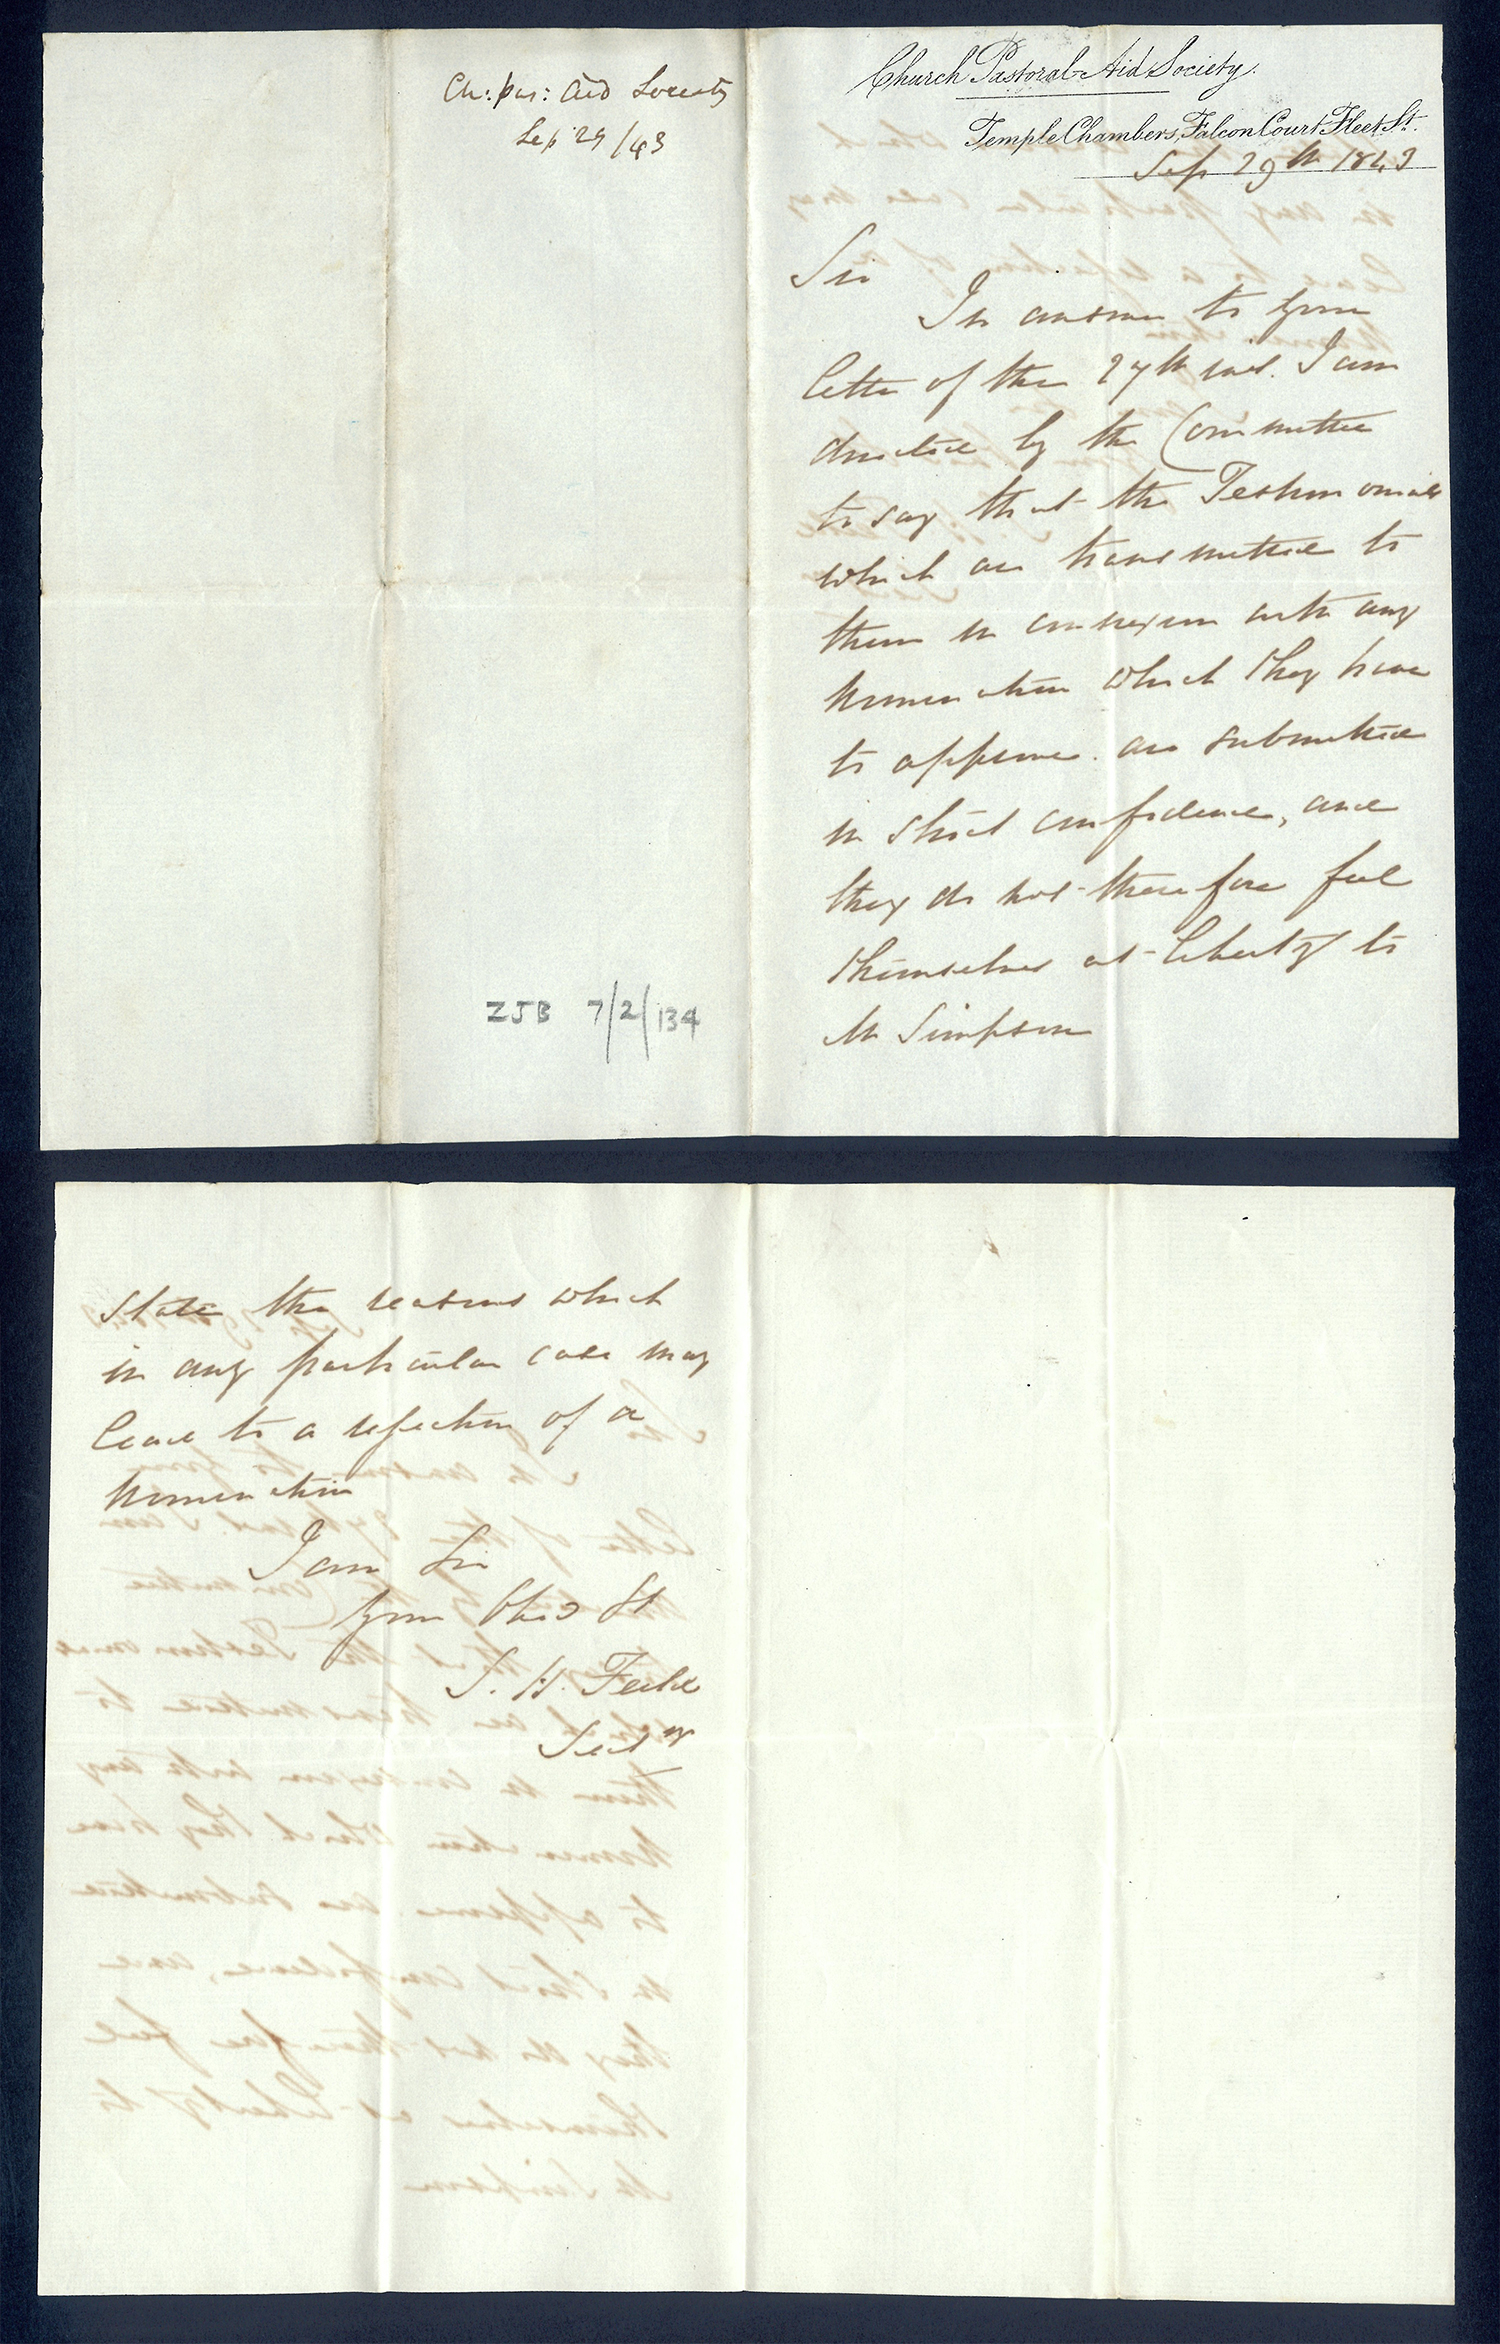 Ch: pas: Aid Society
Sep 29/43
ZJB 7/2/134
Church Pastoral-Aid Society.
Temple Chambers, Falcon Court Fleet St.
Sep 29th 1843
Sir
In answer to your
letter of the 27th inst. I am
directed by the Committee
to say that the Testimonials
which are transmitted to
them in connexion with any
nomination which they have
to approve are submitted
in strict confidence, and
they do not therefore feel
themselves at liberty to
Mr Simpson
state the reasons which
in any particular case may
lead to a rejection of a
nomination
I am Sir
Your Obed St
S. H.
Secty